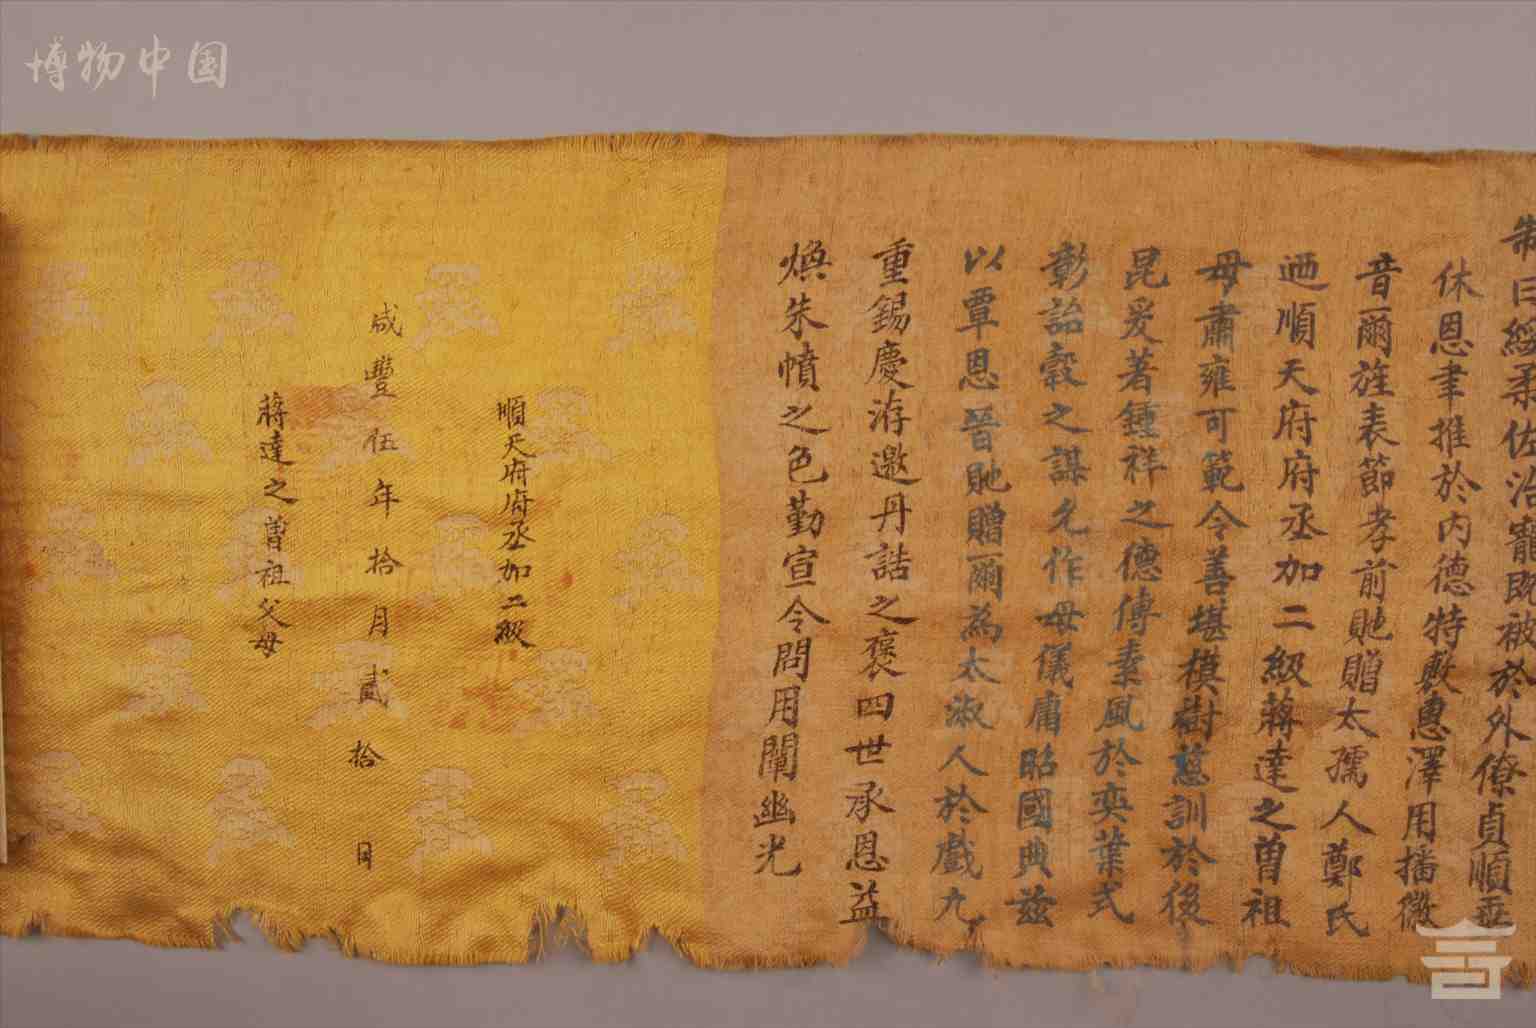 制曰綏柔佐治寵既被於外僚貞順垂
休恩聿推於内德特敷惠澤用播徽
音爾旌表節孝前貤贈太孺人鄭氏
迺順天府府丞加二級蔣達之曾祖
母肅雍可範令善堪模樹慈訓於後
昆爰著鍾祥之德傳素風於奕葉式
彰詒穀之謀允作母儀庸昭國典兹
以覃恩晉貤贈爾為太淑人於戲九
重錫慶洊邀丹誥之褒四世承恩益
煥朱幩之色勤宣令問用闡幽光
順天府府丞加二級
咸豐伍年拾月貳拾日
蔣達之曾祖父母
博物中国